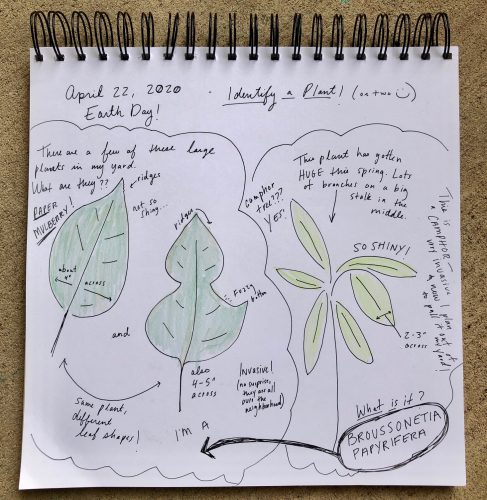 April 22, 2020
Earth Day!
· Identify a Plant! (or two ☺)
There are a few of these large
plants in my yard.
What are they??
PAPER
MULBERRY!
ridges
not so
shiny.
about
4"
across
and
Same plant,
different
leaf shapes!
ridges
Fuzzy
bottom
also
4-5"
across
Invasive!
(no surprise,
they are all
over the
neighborhood)
I'M A
This plant has gotten
HUGE this spring. Lots
of branches on a big
stalk in the
middle.
Camphor
tree???
YES!
SO SHINY!
2-3"
across
This is
a CAMPHOR-
very invasive
& now I plan
to pull it out of
my yard!
What is it?
BROUSSONETIA
PAPYRIFERA